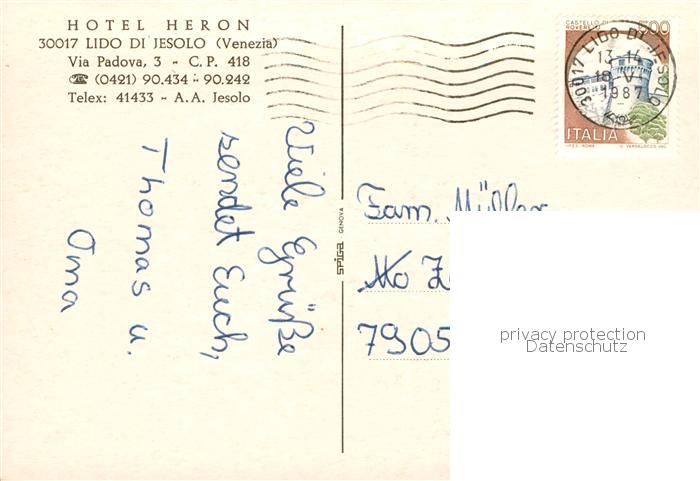 HOTEL HERON
30017 LIDO DI JESOLO (Venezia)
Via Padova, 3 - C.P. 418
☎ (0421) 90.434 - 90.242
Telex: 41433 - A.A. Jesolo
Viele Grüße
sendet Euch,
Thomas u.
Oma
spiga GENOVA
CASTELLO DI
ROVERE
500
ITALIA
I.P.Z.S. ROMA
30017 LIDO DI JESOLO
13-14
1987
Fam. Müller
7905
privacy protection
Datenschutz